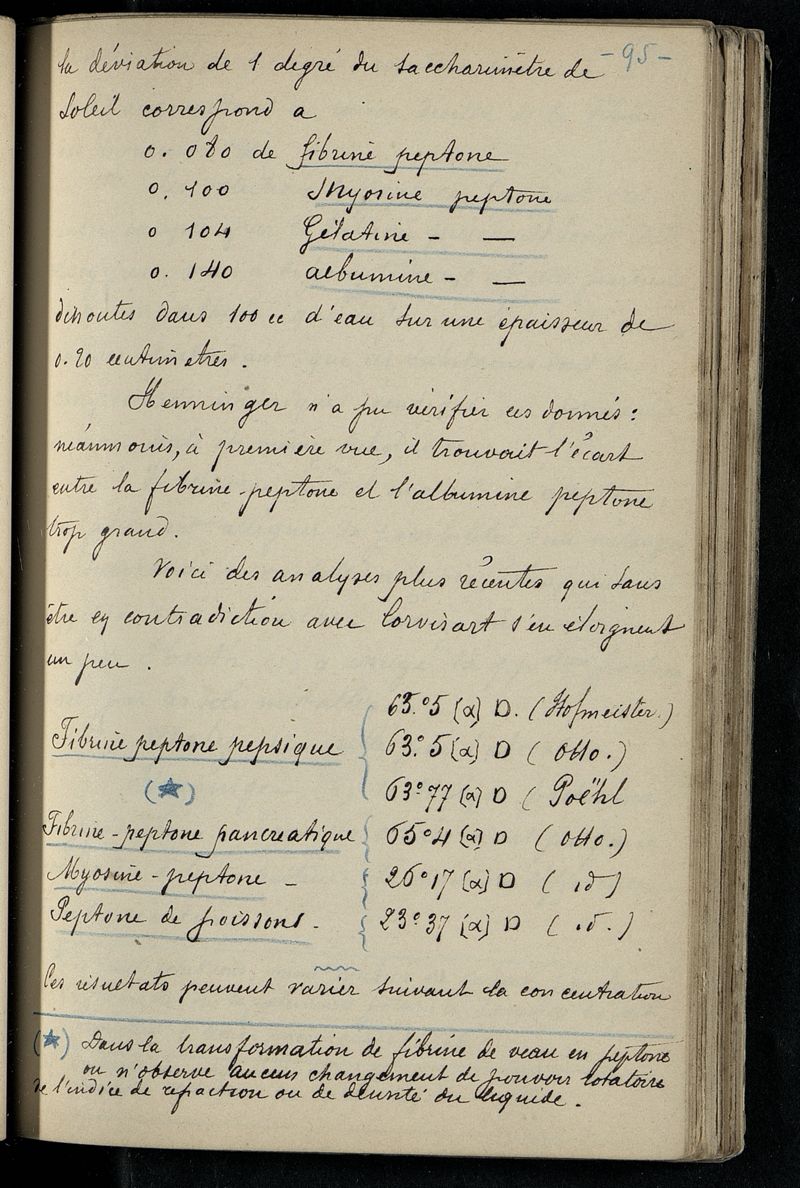 -95-
la déviation de 1 degré du saccharimètre de
Soleil correspond a
0. 080 de fibrine peptone
0. 100 Myosine peptone
0 104 Gélatine - —
0. 140 albumine - —
dissoutes dans 100 cc d'eau sur une épaisseur de
0.20 centimètres.
Henninger n'a pu vérifier ces donnés:
néanmonis, à première vue, il trouvait l'écart
entre la fibrine-peptone et l'albumine peptone
trop grand.
Voici des analyses plus récentes qui sans
être en contradiction avec Corvisart s'en éloignent
un peu.
63.°5 [α] D. (Hofmeister.)
Fibrine peptone pepsique 63°.5 [α] D (Otto.)
(★) 63°.77 [α] D (Poëhl
Fibrine-peptone pancreatique 65°4 [α] D (Otto.)
Myosine-peptone - 26°17 [α] D (id)
Peptone de poissons. 23°.37 [α] D (id.)
Ces résultats peuvent varier suivant la concentration
(★) Dans la transformation de fibrine de veau en peptone
on n'observe aucun changement de pouvoir rotatoire
de l'indice de refraction ou de densité du liquide.